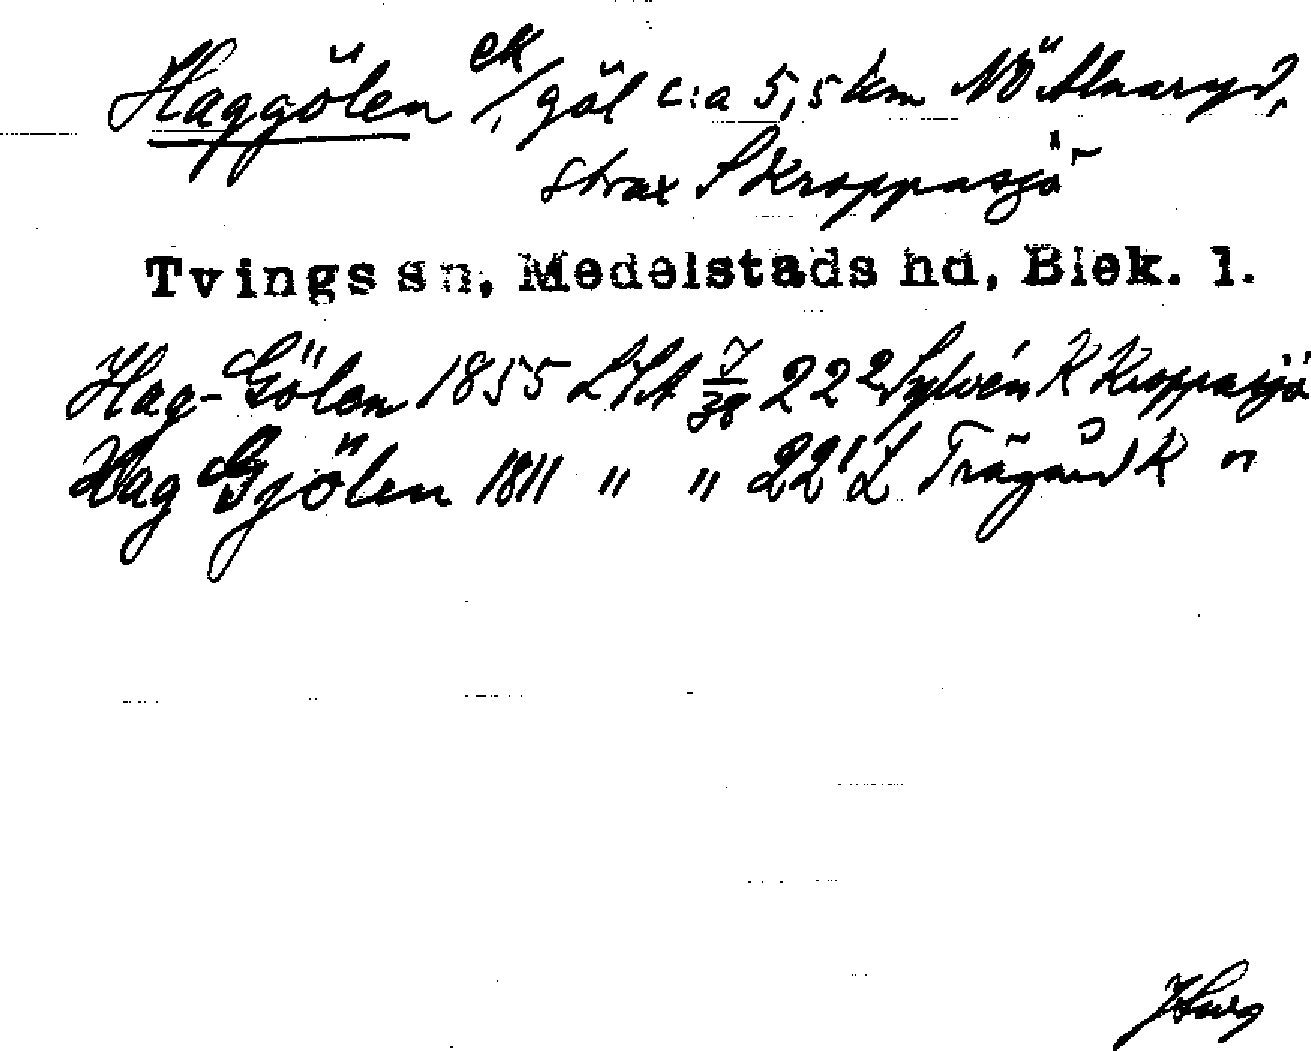 Haggölen ek/, göl c:a 5,5 km NÖ Alnaryd,
strax S Kroppasjö
Tvings sn, Medelstads hd, Blek. l.
Hag-Gölen 1855 LSA 7/38 22² Sylvén K Kroppasjö
Hag Gjölen 1811 " " 22¹ L Trägård K "